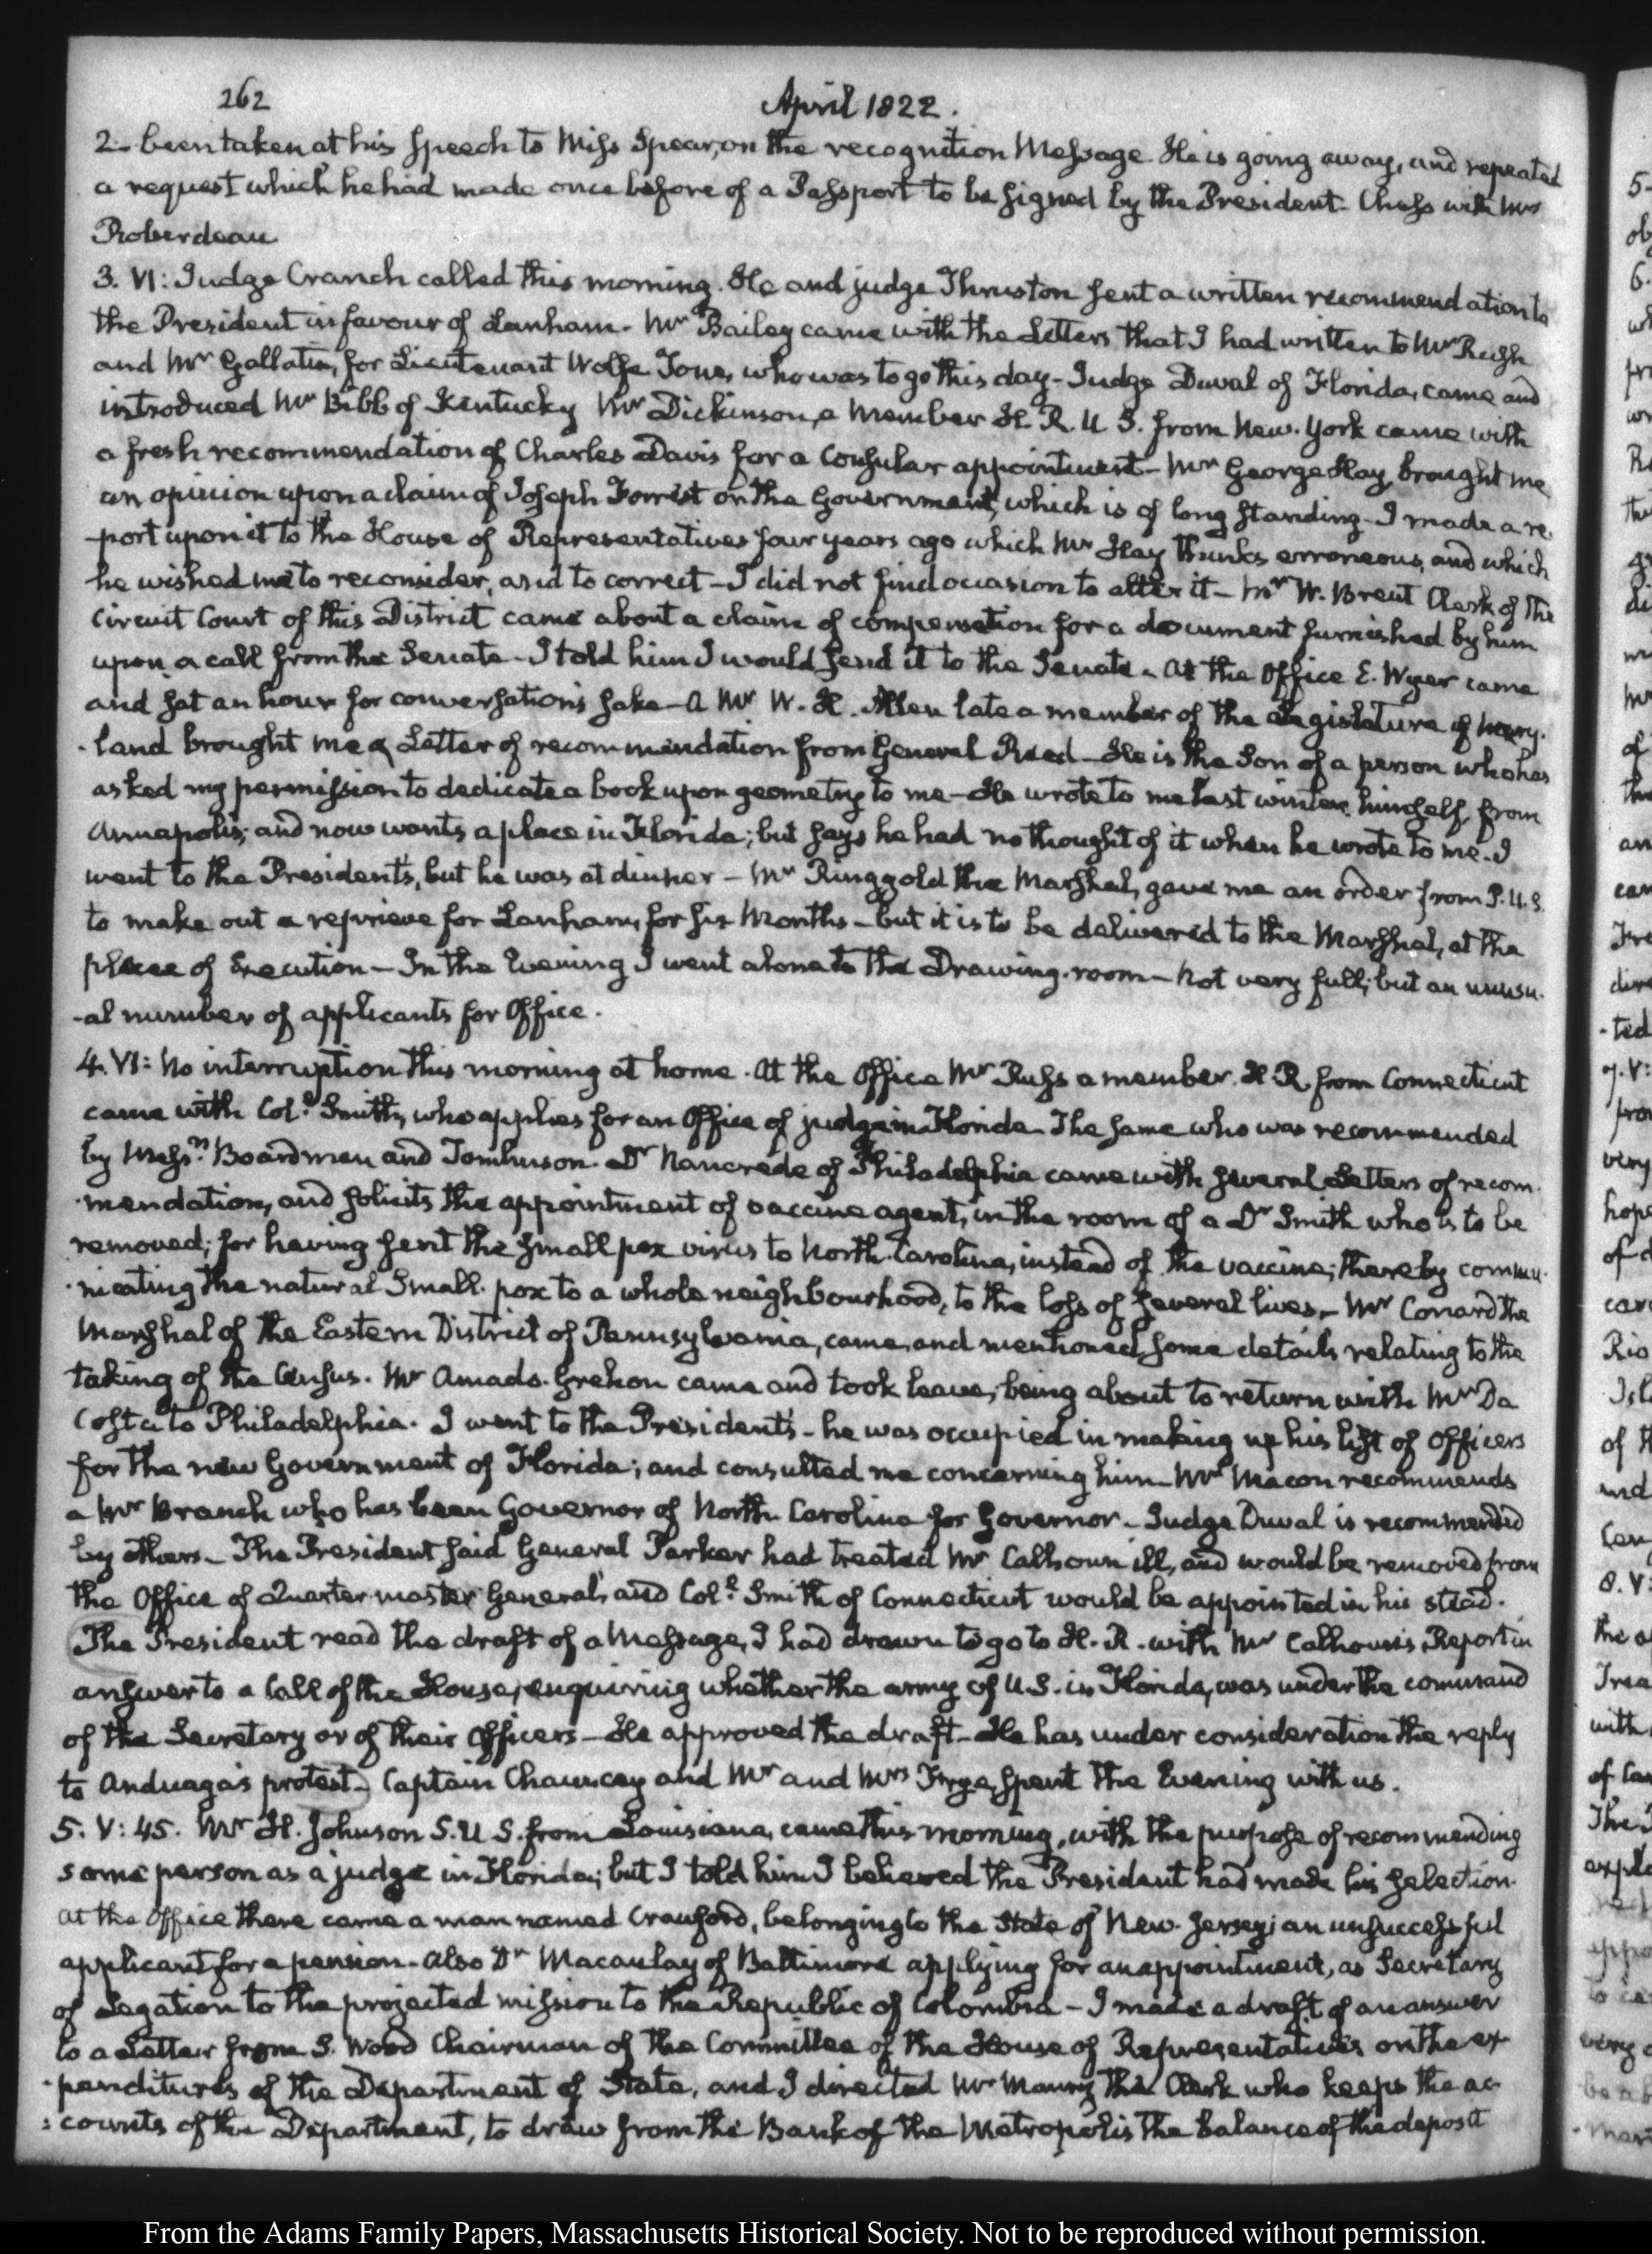 262
April 1822.
2– been taken at his speech to Miss Spear, on the recognition Message. He is going away, and repeated
a request which he had made once before of a Passport to be signed by the President– Chess with Mrs
Roberdeau
3. VI: Judge Cranch called this morning. He and judge Thruston sent a written recommendation to
the President in favour of Lanham– Mr Bailey came with the Letters that I had written to Mr Rush
and Mr Gallatin, for Lieutenant Wolfe Tone, who was to go this day– Judge Duval of Florida, came and
introduced Mr Bibb of Kentucky Mr Dickinson, a Member H. R. U. S. from New-York came with
a fresh recommendation of Charles Davis for a Consular appointment– Mr George Hay, brought me
an opinion upon a claim of Joseph Forrest on the Government, which is of long standing– I made a re-
-port upon it to the House of Representatives four years ago which Mr Hay thinks erroneous, and which
he wished me to reconsider, and to correct– I did not find occasion to alter it– Mr W. Brent Clerk of the
Circuit Court of this District came about a claim of compensation for a document furnished by him
upon a call from the Senate– I told him I would send it to the Senate– At the Office E. Wyer came
and sat an hour for conversation's sake– A Mr W. H. Allen late a member of the Legislature of Mary-
-land brought me a Letter of recommendation from General Reed– He is the Son of a person who has
asked my permission to dedicate a book upon geometry to me– He wrote to me last winter himself, from
Annapolis; and now wants a place in Florida; but says he had no thought of it when he wrote to me– I
went to the President's, but he was at dinner– Mr Ringgold the Marshal, gave me an order from P. U. S.
to make out a reprieve for Lanham, for six Months– but it is to be delivered to the Marshal, at the
place of Execution– In the Evening I went alone to the Drawing-room– Not very full; but an unusu-
-al number of applicants for Office.
4. VI: No interruption this morning at home. At the Office Mr Russ a member H. R. from Connecticut
came with Coll. Smith, who applies for an Office of judge in Florida– The same who was recommended
by Messrs Boardman and Tomlinson. Dr Nancrède of Philadelphia came with several Letters of recom-
-mendation, and solicits the appointment of vaccine agent, in the room of a Dr Smith who is to be
removed; for having sent the small pox virus to North-Carolina, instead of the vaccine; thereby commu-
-nicating the natural Small-pox to a whole neighbourhood, to the loss of several lives– Mr Conard the
Marshal of the Eastern District of Pennsylvania, came, and mentioned some details relating to the
taking of the Census. Mr Amado-Grehon came and took leave, being about to return with Mr Da
Costa to Philadelphia. I went to the President's– he was occupied in making up his list of Officers
for the new Government of Florida; and consulted me concerning him– Mr Macon recommends
a Mr Branch who has been Governor of North-Carolina for Governor– Judge Duval is recommended
by others– The President said General Parker had treated Mr Calhoun ill, and would be removed from
the Office of Quarter master General, and Coll. Smith of Connecticut would be appointed in his stead.
The President read the draft of a Message, I had drawn to go to H. R. with Mr Calhoun's Report in
answer to a Call of the House, enquiring whether the army of U. S. in Florida, was under the command
of the Secretary or of their Officers– He approved the draft– He has under consideration the reply
to Anduaga's protest– Captain Chauncey and Mr and Mrs Frye spent the Evening with us.
5. V: 45. Mr H. Johnson S. U S. from Louisiana, came this morning, with the purpose of recommending
some person as a judge in Florida; but I told him I believed the President had made his selection.
At the Office there came a man named Crauford, belonging to the State of New-Jersey; an unsuccessful
applicant for a pension– Also Dr Macaulay of Baltimore applying for an appointment, as Secretary
of Legation to the projected mission to the Republic of Colombia– I made a draft of an answer
to a Letter from S. Wood Chairman of the Committee of the House of Representatives on the ex-
-penditures of the Department of State, and I directed Mr Maury the Clerk who keeps the ac-
:counts of the Department, to draw from the Bank of the Metropolis the balance of the deposit
From the Adams Family Papers, Massachusetts Historical Society. Not to be reproduced without permission.